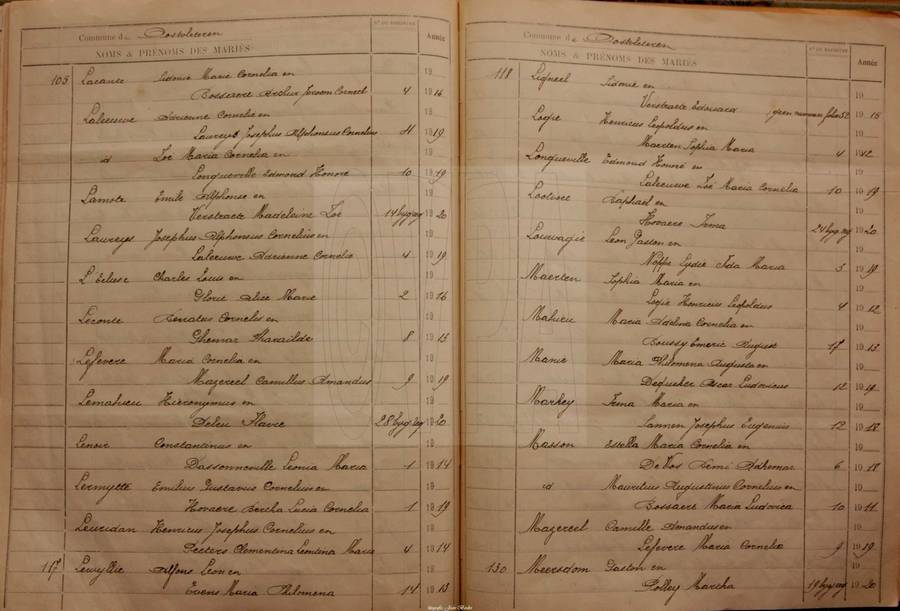 Commune de Oostvleteren
Nº DU REGISTRE
Année
NOMS & PRÉNOMS DES MARIÉS
105 Lacante Sidonie Marie Cornelia en 19
Bossaere Arthur Jeroom Corneel 4 1914
Laleeuwe Adrienne Cornelie en 19
Laureys Josephus Alphonsus Cornelius 4 1919
id Zoé Maria Cornelia en 19
Longueville Edmond Honoré 10 1919
Lamote Emile Alphonse en 19
Verstraete Madeleine Zoé 14 byg reg 1920
Laureys Josephus Alphonsus Cornelius en 19
Laleeuwe Adrienne Cornelie 4 1919
L'Ecluse Charles Louis en 19
Glorie Alice Marie 2 1916
Leconte Seraties Cornelis en 19
Ghemar Pharailde 8 1913
Lefevere Maria Cornelia en 19
Mazereel Camillus Amandus 9 1919
Lemahieu Hieronymus en 19
Deleu Flavie 28 byg reg 1920
Lenoir Constantinus en 19
Dassonneville Leonia Maria 1 1914
Lermytte Emilius Gustavus Cornelius en 19
Hovaere Bertha Lucia Cornelia 1 1919
Leuridan Henricus Josephus Cornelius en 19
Peeters Clementina Leontina Maria 4 1914
117 Lewyllie Alfons Leon en 19
Evens Maria Philomena 14 1913
Commune de Oostvleteren
Nº DU REGISTRE
Année
NOMS & PRÉNOMS DES MARIÉS
118 Ligneel Sidonie en 19
Verstraete Edouard geen nummer folio 52 1915
Logie Henricus Leopoldus en 19
Maerten Sophia Maria 4 1912
Longueville Edmond Honoré en 19
Laleeuwe Zoé Maria Cornelia 10 1919
Lootvoet Raphael en 19
Hovaere Irma 24 byg reg 1920
Louwagie Leon Gaston en 19
Noppe Lydie Ida Maria 3 1919
Maerten Sophia Maria en 19
Logie Henricus Leopoldus 4 1912
Mahieu Maria Adelina Cornelia en 19
Boussy Emeric August 17 1913
Marie Maria Philomena Augusta en 19
Dequeker Oscar Ludovicus 12 1919
Markey Irma Maria en 19
Sannen Josephus Eugenius 12 1912
Masson Estella Maria Cornelia en 19
De Vos Remi Adhemar 6 1912
id Mauritius Augustinus Cornelius en 19
Bossaere Maria Ludovica 10 1911
Mazereel Camille Amandus en 19
Lefevere Maria Cornelia 9 1919
130 Meersdom Gaston en 19
Polley Martha 19 byg reg 1920